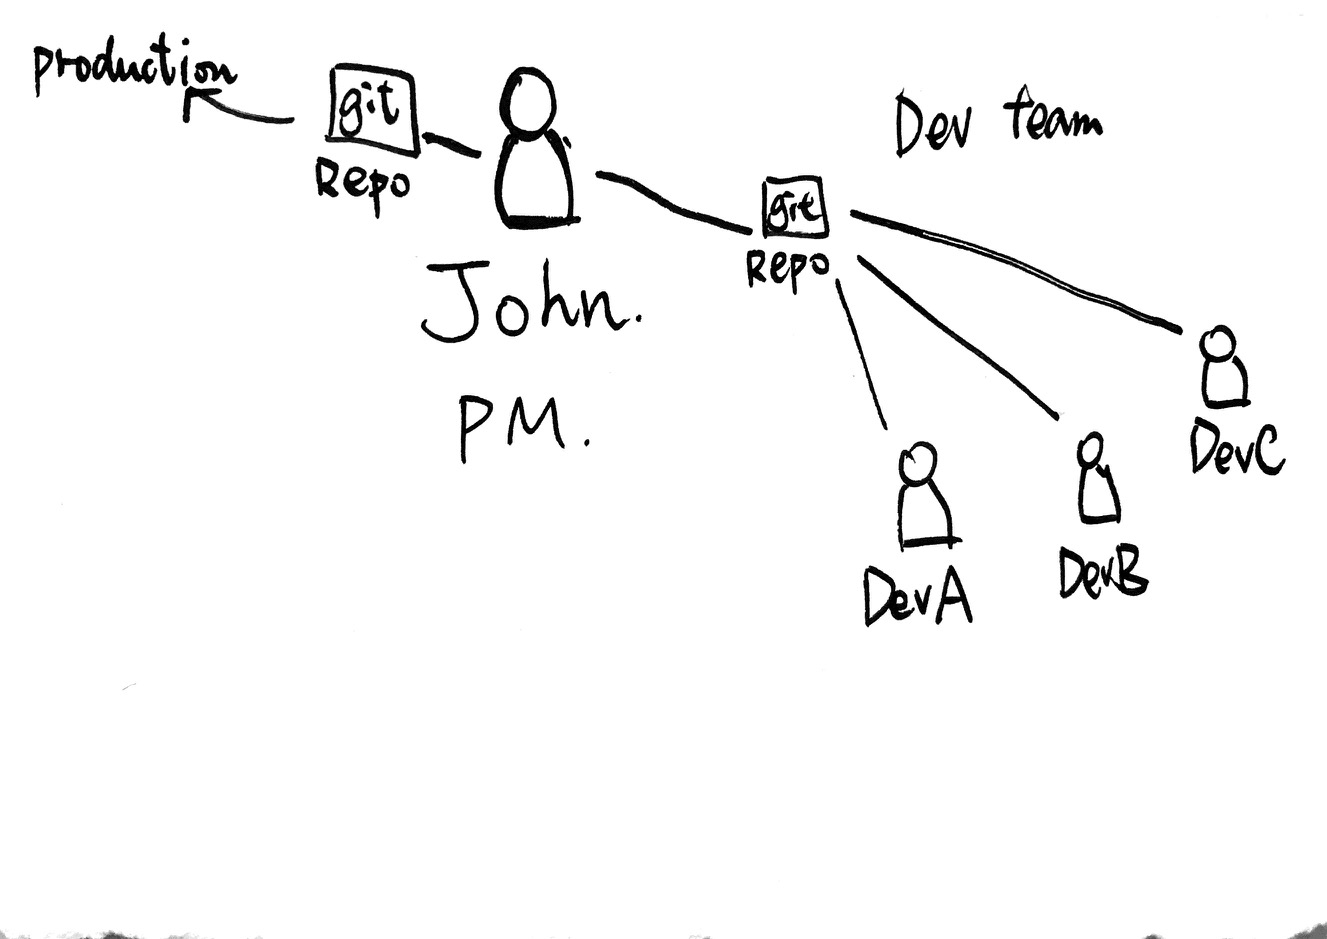 production
git
Repo
John.
PM.
Dev team
git
Repo
DevA
DevB
DevC